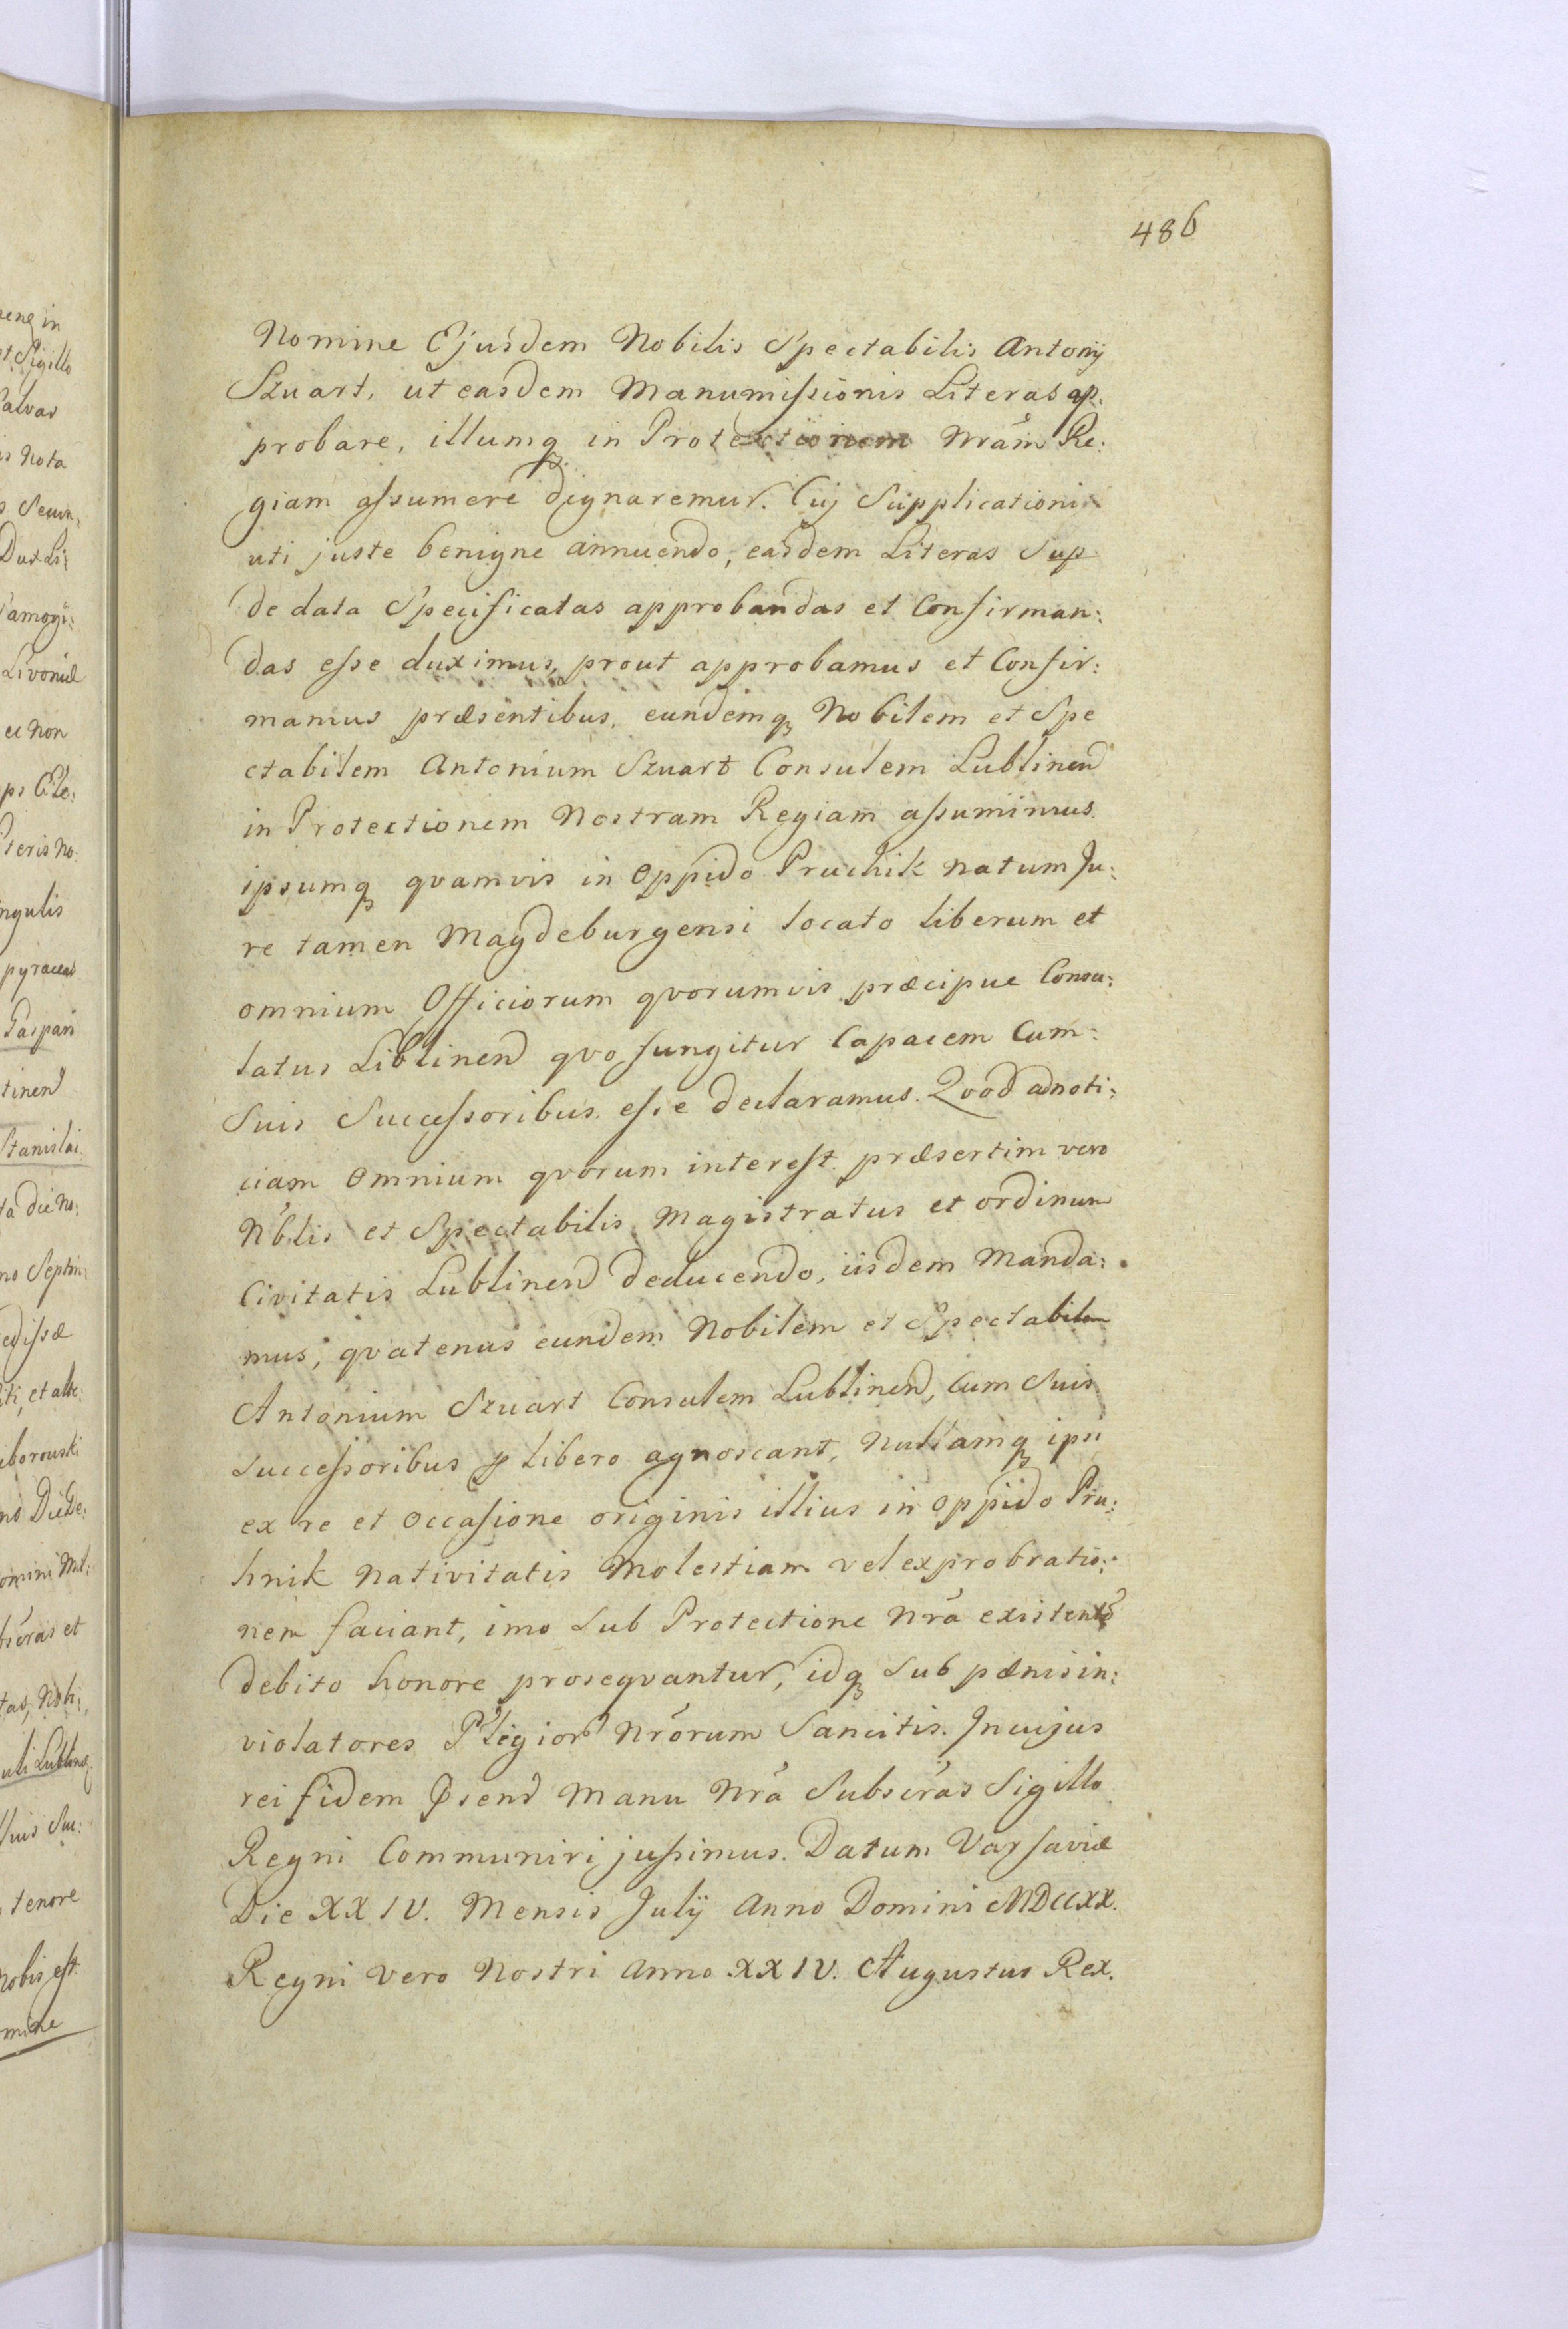 486
Nomine Ejusdem Nobilis Spectabilis Antonij
Szuart, ut easdem Manumissionis Literas ap:
probare, illumq in Protectionem Nrãm Re:
giam assumere dignaremur. Cuj Supplicationi
uti juste benigne annuendo, easdem Literas Sup
de data Specificatas approbandas et Confirman:
das esse duximus, prout approbamus et Confir:
mamus præsentibus, eundemq Nobilem et Spe
ctabilem Antonium Szuart Consulem Lublinen
in Protectionem Nostram Regiam assumimus.
ipsumq qvamvis in Oppido Pruchik natum Ju:
re tamen Magdeburgensi locato liberum et
omnium Officiorum qvorumvis præcipue Consu:
latus Liblinen qvo fungitur Capacem Cum:
Suis Successoribus esse declaramus. Qvod ad noti:
ciam Omnium qvorum interest. præsertim vero
Nblis et Spectabilis Magistratus et ordinum
Civitatis Lublinen deducendo, iisdem Manda:
mus, qvatenus eundem Nobilem et Spectabilem
Antonium Szuart Consulem Lublinen, Cum Suis
Successoribus p libero agnoscant, Nullamq ipsi
ex re et Occasione originis illius in Oppido Pru:
hnik Nativitatis Molestiam vel exprobratio:
nem faciant, imo Sub Protectione Nrã existentẽ
debito honore proseqvantur, idq Sub pænis in:
violatores Plegior Nrõrum Sancitis. In cujus
rei fidem Psend Manu Nrã Subscrãs Sigillo
Regni Communiri jussimus. Datum Varsaviæ
Die XXIV. Mensis Julij Anno Domini MDCCXX.
Regni vero Nostri Anno XXIV. Augustus Rex.